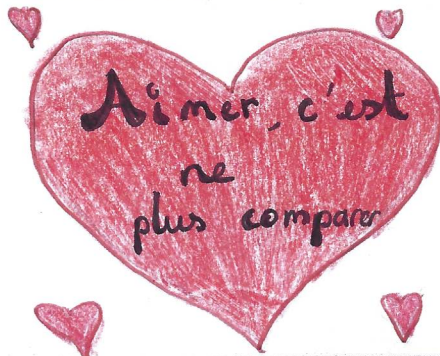 Aimer, c'est
ne
plus comparer